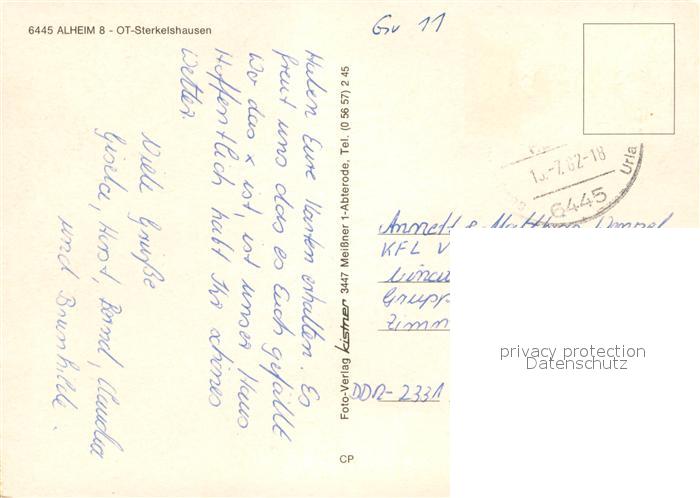 6445 ALHEIM 8 - OT-Sterkelshausen
Gw 11
Haben Eure Karten erhalten. Es
freut uns das es Euch gefällt
Wo das x ist, ist unser Haus.
Hoffentlich habt Ihr schönes
Wetter.
Viele Grüße
Gisela, Horst, Bernd, Claudia
und Brunhilde.
Foto-Verlag kistner 3447 Meißner 1-Abterode, Tel. (0 56 57) 2 45
CP
-7.82-18
6445
Urla
Annett &
KFL V
Grupp
Zimm
DDR-2331
privacy protection
Datenschutz